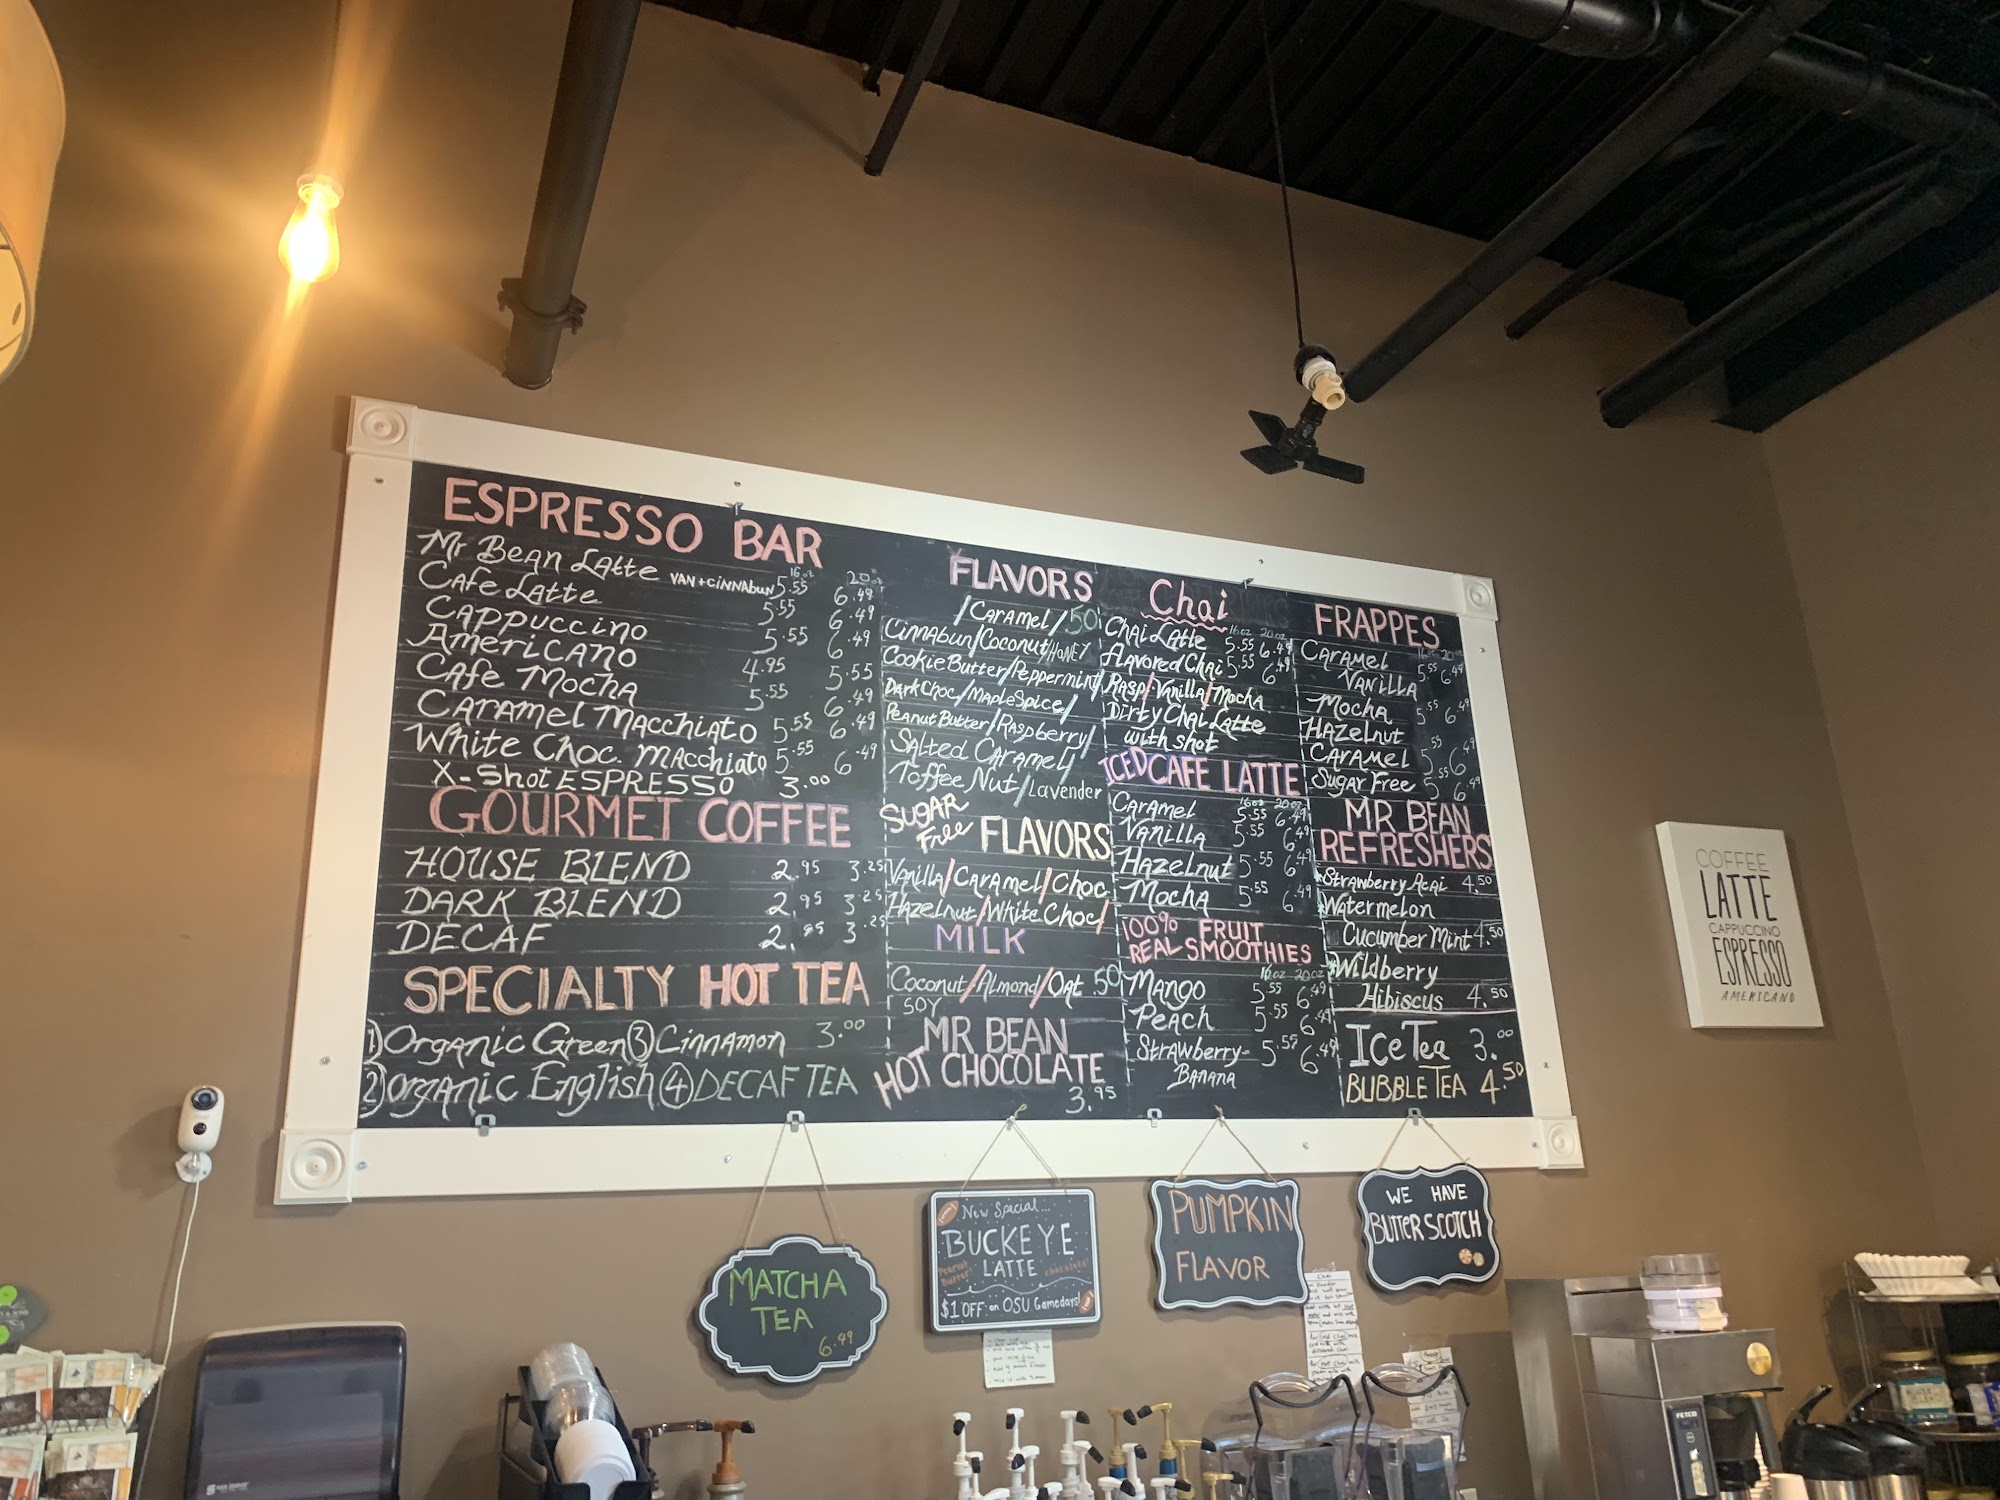 ESPRESSO BAR
16oz 20oz
Mr Bean Latte VAN+CINNAbuN 5.55 6.49
Cafe Latte 5.55 6.49
CAPPUCCINO 5.55 6.49
AMERICANO 4.95 5.55
CAFE MOCHA 5.55 6.49
CARAMEL MACCHIATO 5.55 6.49
White Choc. MAcchiato 5.55 6.49
X-Shot ESPRESSO 3.00
GOURMET COFFEE
HOUSE BLEND 2.95 3.25
DARK BLEND 2.95 3.25
DECAF 2.95 3.25
SPECIALTY HOT TEA
1) Organic Green 3 Cinnamon 3.00
2) Organic English 4 DECAF TEA
FLAVORS
/CARAMEL/.50
Cinnabun/Coconut/HONEY
Cookie Butter/Peppermint/
Dark Choc/MapleSpice/
Peanut Butter/Raspberry/
Salted Caramel/
Toffee Nut/Lavender
SUGAR Free FLAVORS
Vanilla/Caramel/Choc
Hazelnut/White Choc/
MILK
Coconut/Almond/Oat .50
SOY
MR BEAN
HOT CHOCOLATE
3.95
Chai
16oz 20oz
Chai Latte 5.55 6.49
flavored Chai 5.55 6.49
Rasp/Vanilla/Mocha
Dirty Chai Latte
with shot
ICED CAFE LATTE
16oz 20oz
Caramel 5.55 6.49
Vanilla 5.55 6.49
Hazelnut 5.55 6.49
Mocha 5.55 6.49
100% FRUIT
REAL SMOOTHIES
16oz 20oz
Mango 5.55 6.49
Peach 5.55 6.49
Strawberry- 5.55 6.49
BANANA
FRAPPES
16oz 20oz
CARAMEL 5.55 6.49
VANILLA
MOCHA 5.55 6.49
HAZELNUT
CARAMEL 5.55 6.49
Sugar Free 5.55 6.49
MR BEAN
REFRESHERS
Strawberry Acai 4.50
Watermelon
Cucumber Mint 4.50
Wildberry
Hibiscus 4.50
Ice Tea 3.00
BUBBLE TEA 4.50
MATCHA
TEA
6.49
New Special...
BUCKEYE
Peanut Butter! LATTE chocolate!
$1 OFF on OSU Gamedays!
PUMPKIN
FLAVOR
WE HAVE
BUTTERSCOTCH
COFFEE
LATTE
CAPPUCCINO
ESPRESSO
AMERICANO
FETCO